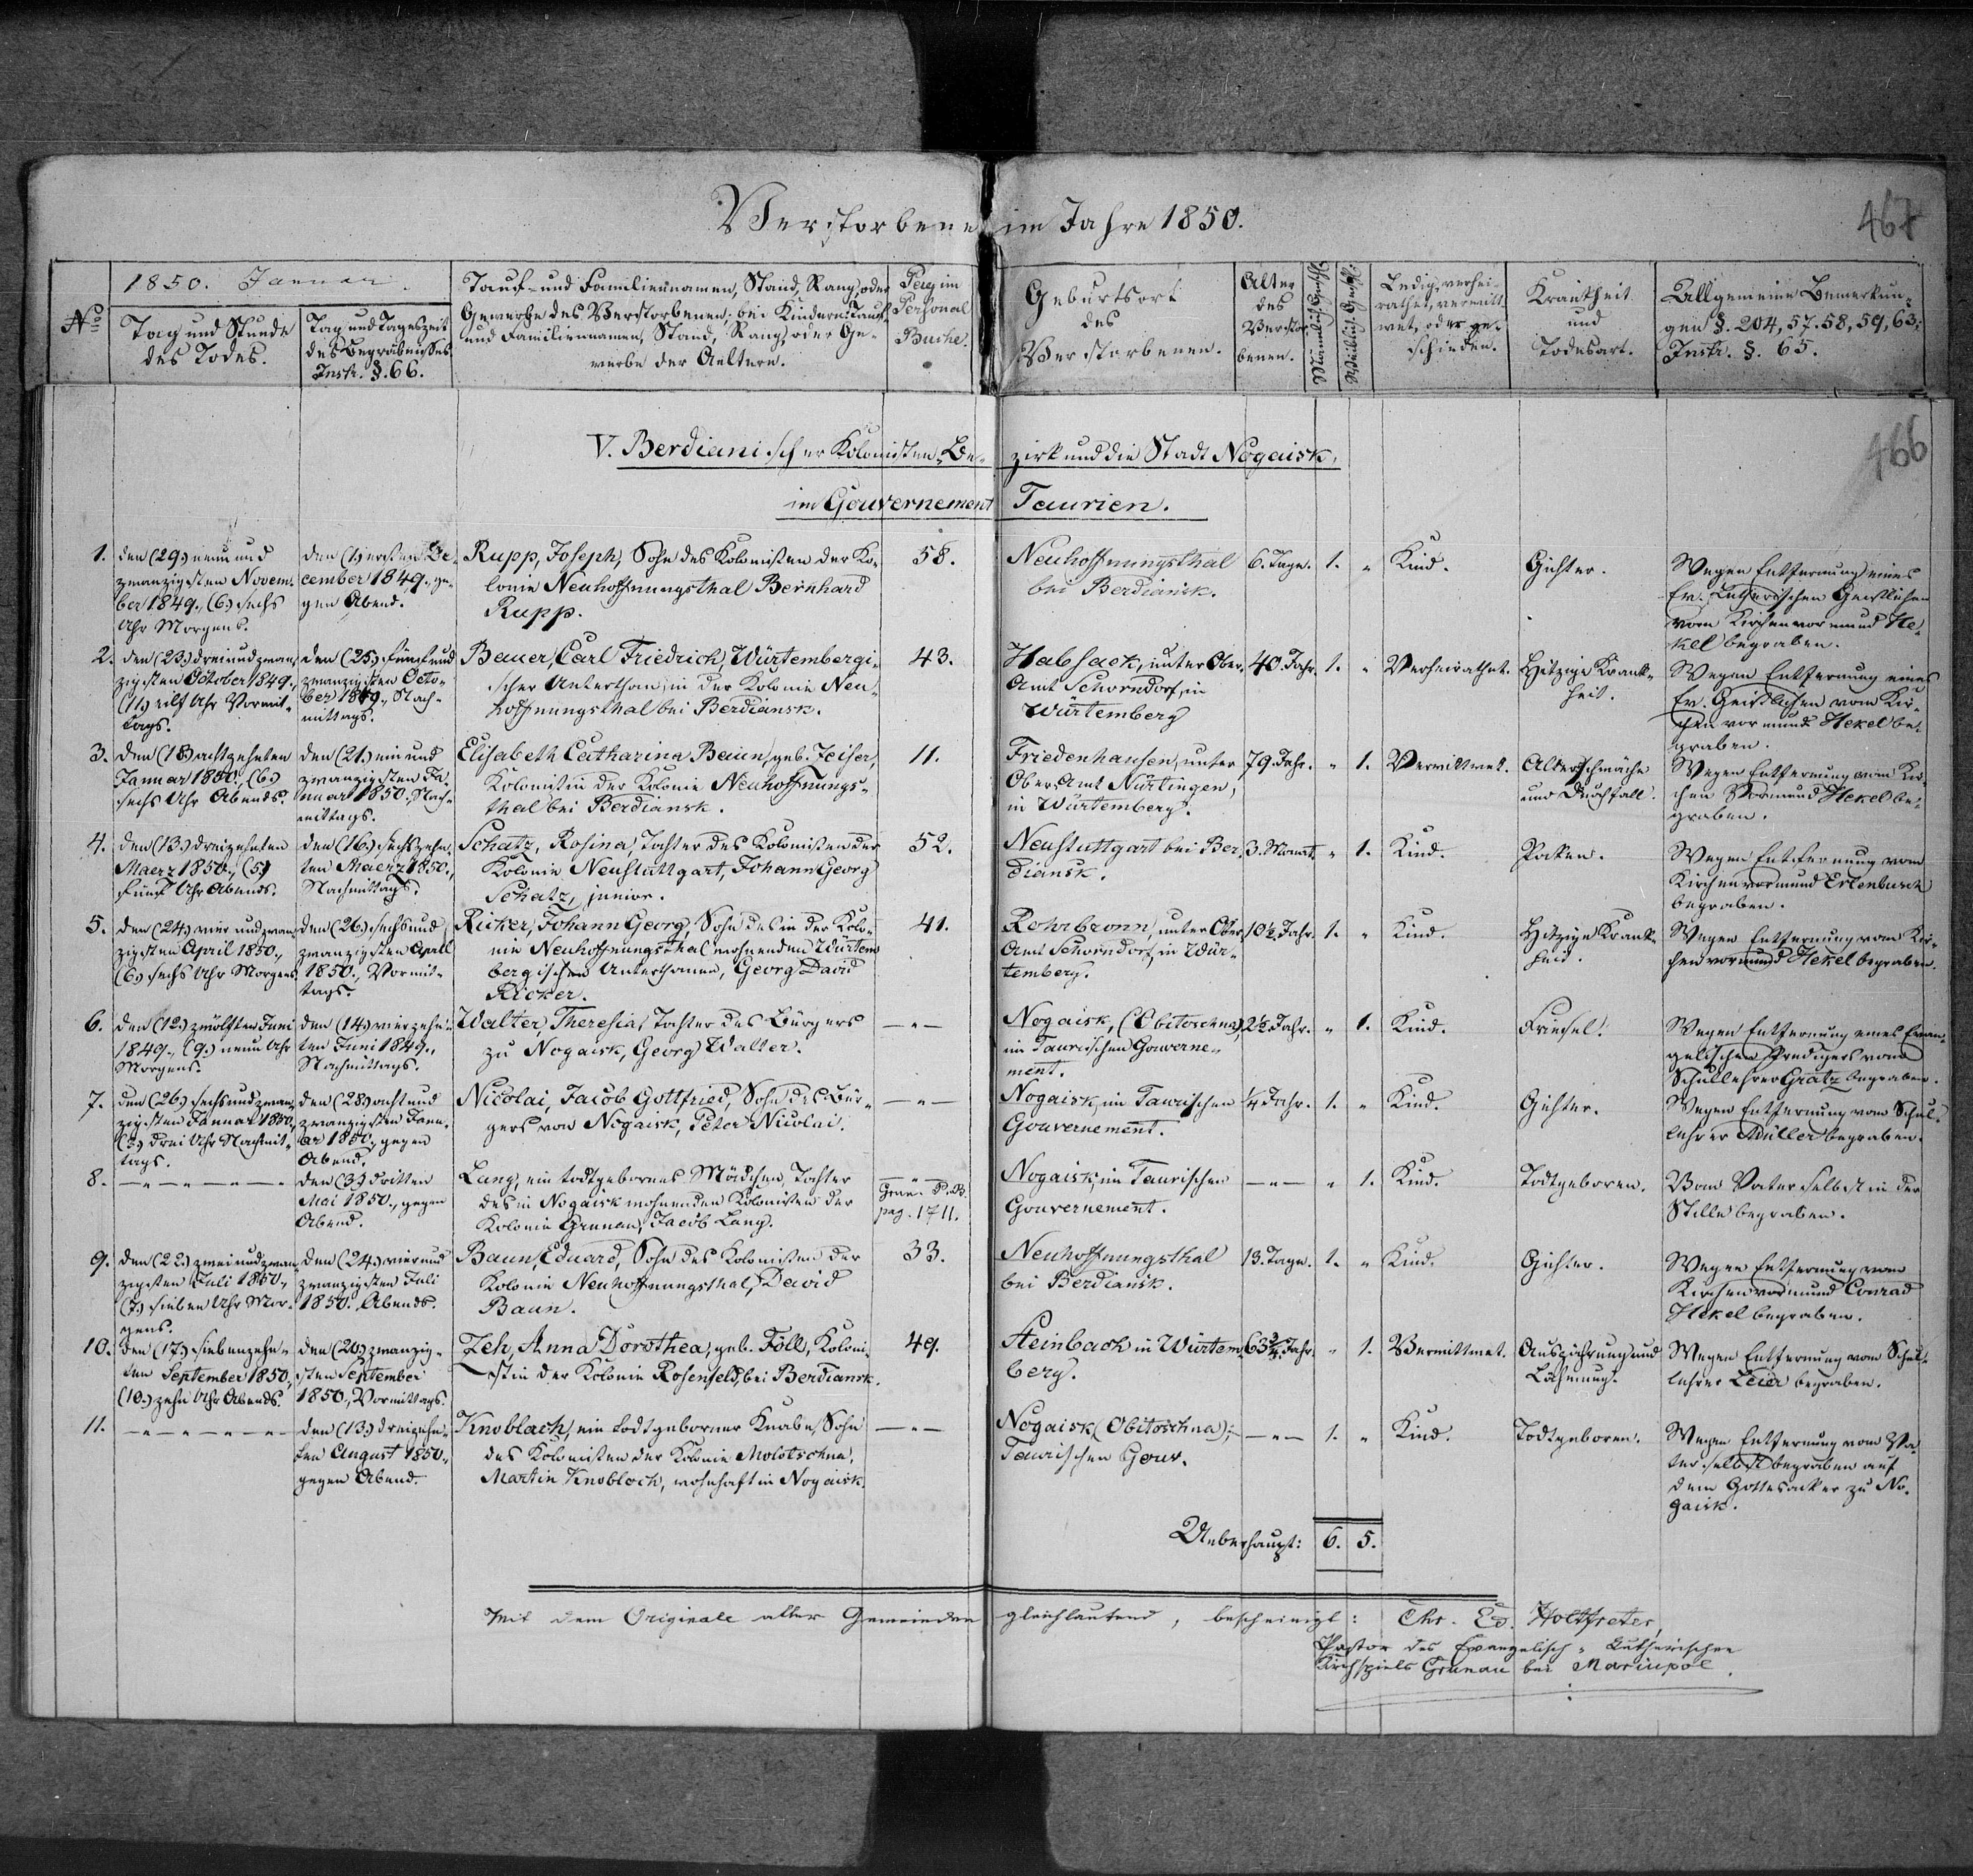 Verstorbene im Jahre 1850.
467
No
1850. Januar.
Tag und Stunde
des Todes.
Tag und Tageszeit
des Begräbnisses
Instr. §. 66.
Tauf- und Familiennamen, Stand, Rang, oder
Gewerbe des Verstorbenen; bei Kindern: Tauf-
und Familiennamen, Stand, Rang, oder Ge-
werbe der Aeltern.
Pag. im
Personal
Buche.
Geburtsort
des
Verstorbenen.
Alter
des
Verstor-
benen.
Männlich. Geschl.
Weiblich. Geschl.
Ledig, verhei-
rathet, verwitt-
wet, oder ge-
schieden.
Krankheit
und
Todesart.
Allgemeine Bemerkun-
gen §. 204, 57. 58, 59, 63;
Instr. §. 65.
466
V. Berdianischer Kolonisten-Be- zirk und die Stadt Nogaisk,
im Gouvernement Taurien.
1.
den (29.) neun und
zwanzigsten Novem-
ber 1849., (6.) sechs
Uhr Morgens.
den (1.) ersten De-
cember 1849., ge-
gen Abend.
Rupp, Joseph, Sohn des Kolonisten der Ko-
lonie Neuhoffnungsthal Bernhard
Rupp.
58.
Neuhoffnungsthal
bei Berdiansk.
6. Tage.
1.
"
Kind.
Gichter.
Wegen Entfernung eines
Ev. Lutherischen Geistlichen
vom Kirchenvormund He-
kel begraben.
2.
den (23.) dreiundzwan-
zigsten October 1849.,
(11.) eilf Uhr Vormit-
tags.
den (25.) fünf und
zwanzigsten Octo-
ber 1849., Nach-
mittags.
Bauer, Carl Friedrich, Würtembergi-
scher Unterthan, in der Kolonie Neu-
hoffnungsthal bei Berdiansk.
43.
Habsack, unter Ober-
Amt Schorndorf, in
Würtemberg
40. Jahr.
1.
"
Verheirathet.
Hitzige Krank-
heit.
Wegen Entfernung eines
Ev. Geistlichen vom Kir-
chenvormund Hekel be-
graben.
3.
den (18.) achtzehnten
Januar 1850., (6.)
sechs Uhr Abends.
den (21.) ein und
zwanzigsten Ja-
nuar 1850., Nach-
mittags.
Elisabeth Catharina Baun, geb. Zeiser,
Kolonistin der Kolonie Neuhoffnungs-
thal bei Berdiansk.
11.
Friedenhausen, unter
Ober-Amt Nürtingen,
in Würtemberg.
79. Jahr.
"
1.
Verwittwet.
Altersschwäche
und Durchfall.
Wegen Entfernung vom Kir-
chen Vormund Hekel be-
graben.
4.
den (13.) dreizehnten
Maerz 1850., (5.)
fünf Uhr Abends.
den (16.) sechszehn-
ten Maerz 1850.,
Nachmittags.
Schatz, Rosina, Tochter des Kolonisten der
Kolonie Neustuttgart, Johann Georg
Schatz, junior.
52.
Neustuttgart bei Ber-
diansk.
3. Monat.
"
1.
Kind.
Pocken.
Wegen Entfernung vom
Kirchenvormund Erlenbusch
begraben.
5.
den (24.) vier und zwan-
zigsten April 1850.,
(6.) sechs Uhr Morgens.
den (26.) sechs und
zwanzigsten April
1850., Vormit-
tags.
Ricker, Johann Georg, Sohn des in der Kolo-
nie Neuhoffnungsthal wohnenden Würtem-
bergischen Unterthanen, Georg David
Ricker.
41.
Rohrbronn, unter Ober-
Amt Schorndorf, in Wür-
temberg.
10 1/2. Jahr.
1.
"
Kind.
Hitzige Krank-
heit.
Wegen Entfernung vom Kir-
chenvormund Hekel begraben.
6.
den (12.) zwölften Juni
1849., (9.) neun Uhr
Morgens.
den (14.) vierzehn-
ten Juni 1849.,
Nachmittags.
Walter, Theresia, Tochter des Bürgers
zu Nogaisk, Georg Walter.
— " —
Nogaisk, (Obitoschna),
im Taurischen Gouverne-
ment.
2 1/2. Jahr.
"
1.
Kind.
Friesel.
Wegen Entfernung eines Evan-
gelischen Predigers vom
Schullehrer Gratz begraben.
7.
den (26.) sechs und zwan-
zigsten Januar 1850.,
(3.) drei Uhr Nachmit-
tags.
den (28.) acht und
zwanzigsten Janu-
ar 1850., gegen
Abend.
Nicolai, Jacob Gottfried, Sohn des Bür-
gers von Nogaisk, Peter Nicolai.
— " —
Nogaisk, im Taurischen
Gouvernement.
1/4 Jahr.
1.
"
Kind.
Gichter.
Wegen Entfernung vom Schul-
lehrer Müller begraben.
8.
— " — " — " — " —
den (3.) dritten
Mai 1850., gegen
Abend.
Lang, ein todtgebornes Mädchen, Tochter
des in Nogaisk wohnenden Kolonisten der
Kolonie Grunau, Jacob Lang.
— " —
Grun. P. B.
pag. 1711.
Nogaisk, im Taurischen
Gouvernement.
— " —
"
1.
Kind.
Todtgeboren.
Vom Vater selbst in der
Stille begraben.
9.
den (22.) zwei und zwan-
zigsten Juli 1850.,
(7.) sieben Uhr Mor-
gens.
den (24.) vier und
zwanzigsten Juli
1850. Abends.
Baun, Eduard, Sohn des Kolonisten der
Kolonie Neuhoffnungsthal, David
Baun.
33.
Neuhoffnungsthal
bei Berdiansk.
13. Tage.
1.
"
Kind.
Gichter.
Wegen Entfernung vom
Kirchenvormund Conrad
Hekel begraben.
10.
den (17.) siebenzehn-
ten September 1850.,
(10.) zehn Uhr Abends.
den (20.) zwanzig-
sten September
1850., Vormittags.
Zeh, Anna Dorothea, geb. Föll, Koloni-
stin der Kolonie Rosenfeld, bei Berdiansk.
49.
Steinbach in Würtem-
berg.
63 3/4. Jahr.
"
1.
Verwittwet.
Auszehrung und
Lähmung.
Wegen Entfernung vom Schul-
lehrer Leier begraben.
11.
— " — " — " — " —
den (13.) dreizehn-
ten August 1850.,
gegen Abend.
Knoblach, ein todtgeborner Knabe, Sohn
des Kolonisten der Kolonie Molotschna,
Martin Knobloch, wohnhaft in Nogaisk.
— " —
Nogaisk (Obitoschna);
Taurischen Gouv.
— " —
1.
"
Kind.
Todtgeboren.
Wegen Entfernung vom Va-
ter selbst begraben auf
dem Gottesacker zu No-
gaisk.
Ueberhaupt: 6. 5.
Mit dem Originale aller Gemeinden gleichlautend, bescheinigt: Chr. Ed. Holtfreter,
Pastor des Evangelisch-Lutherischen
Kirchspiels Grunau bei Mariupol.